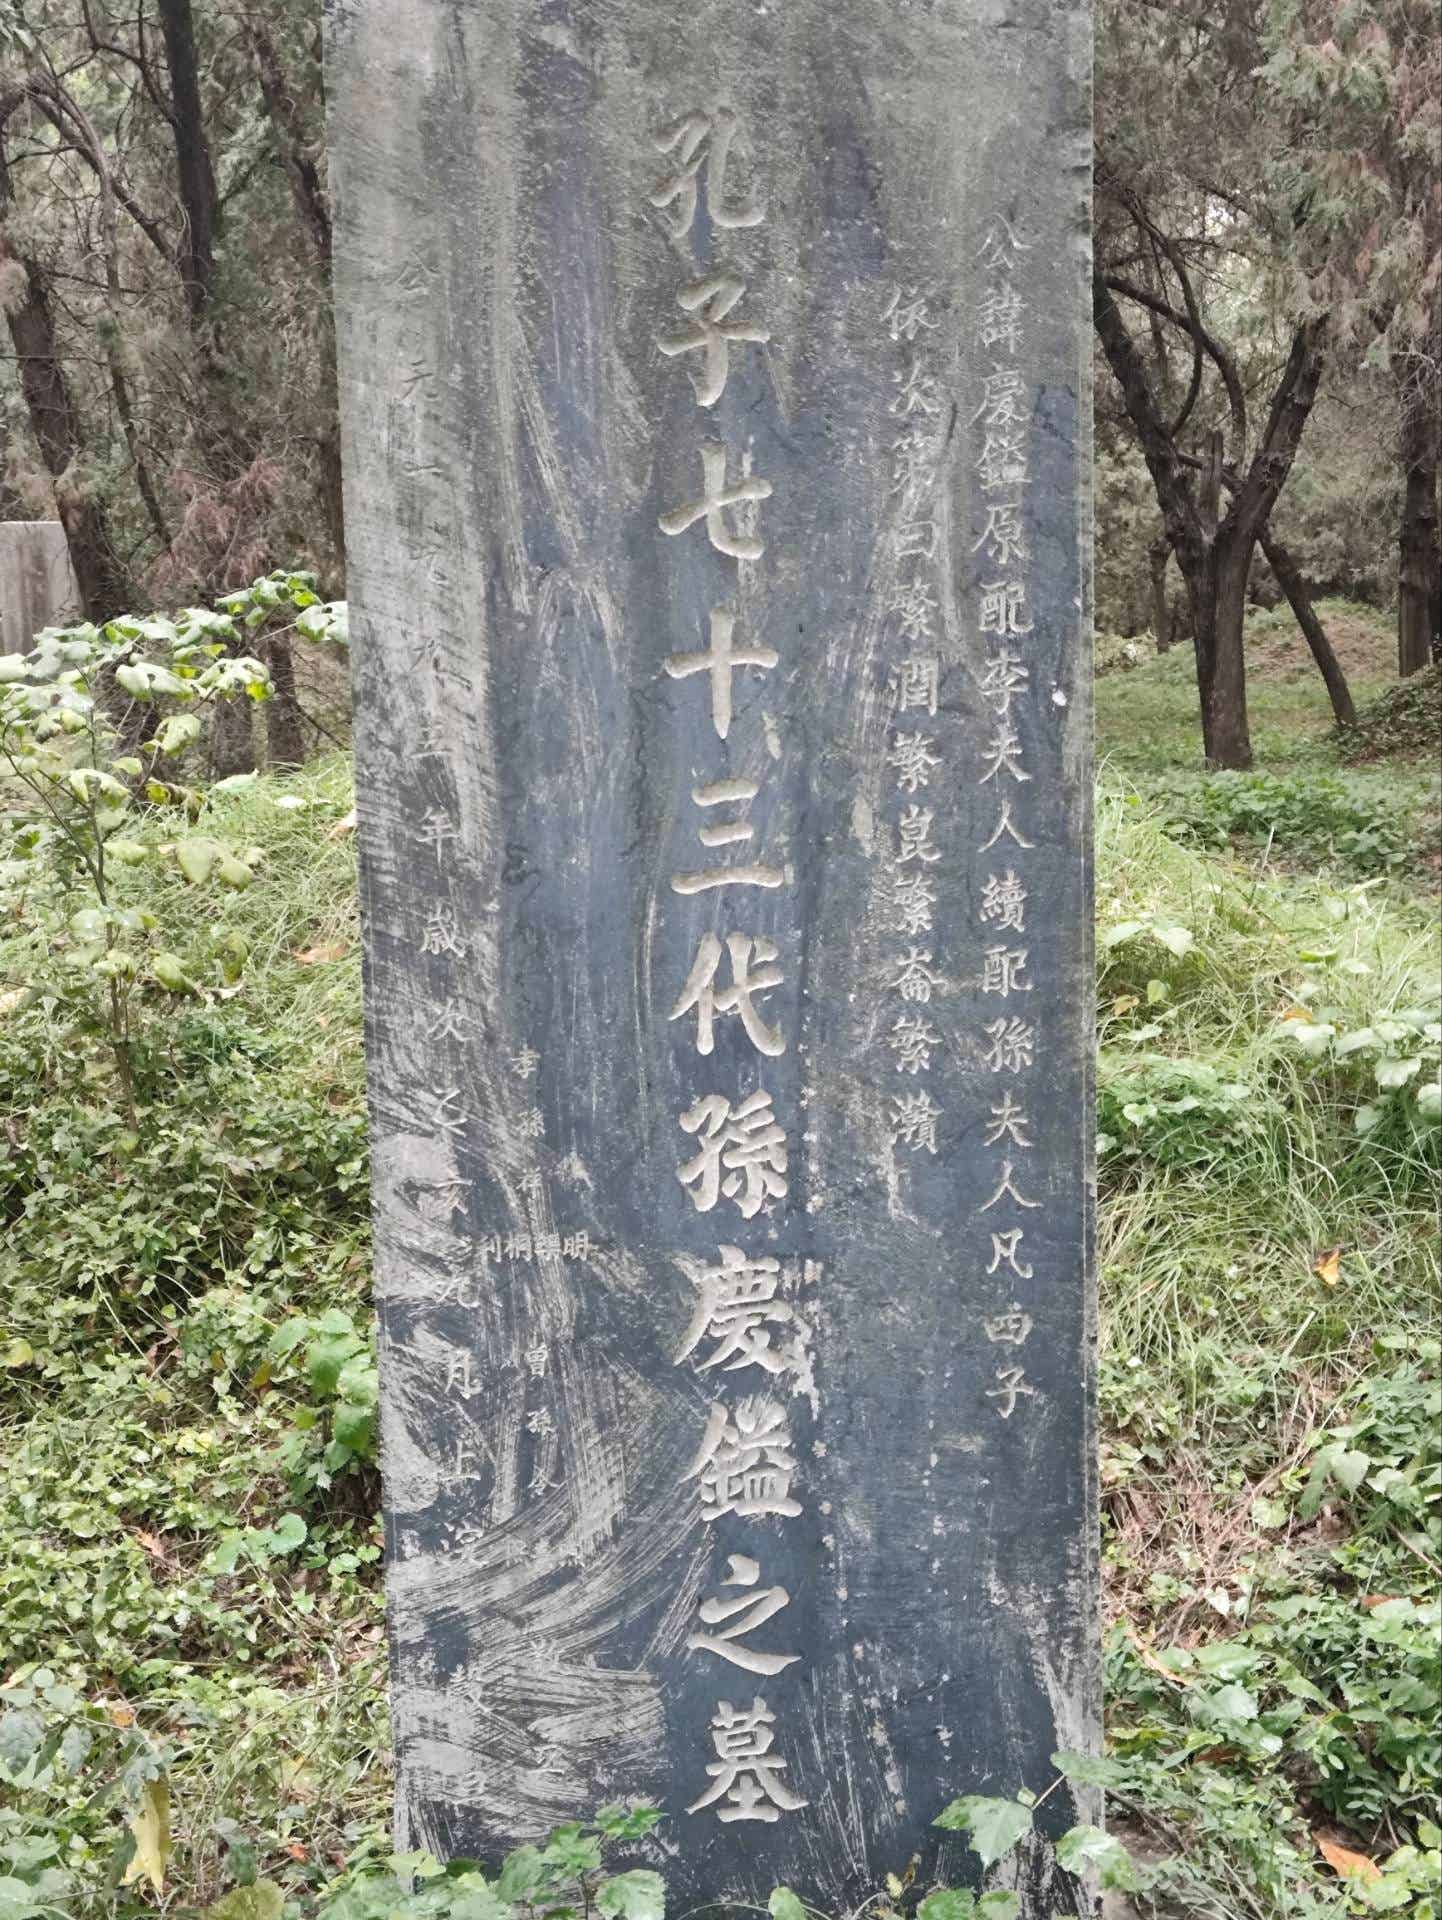 公諱慶鎰原配李夫人續配孫夫人凡四子
依次第曰繁潤繁崑繁崙繁瀠
孔子七十三代孫慶鎰之墓
孝孫祥
明
桐利
曾孫令
立
公元一九九五年歲次乙亥九月上浣 穀旦